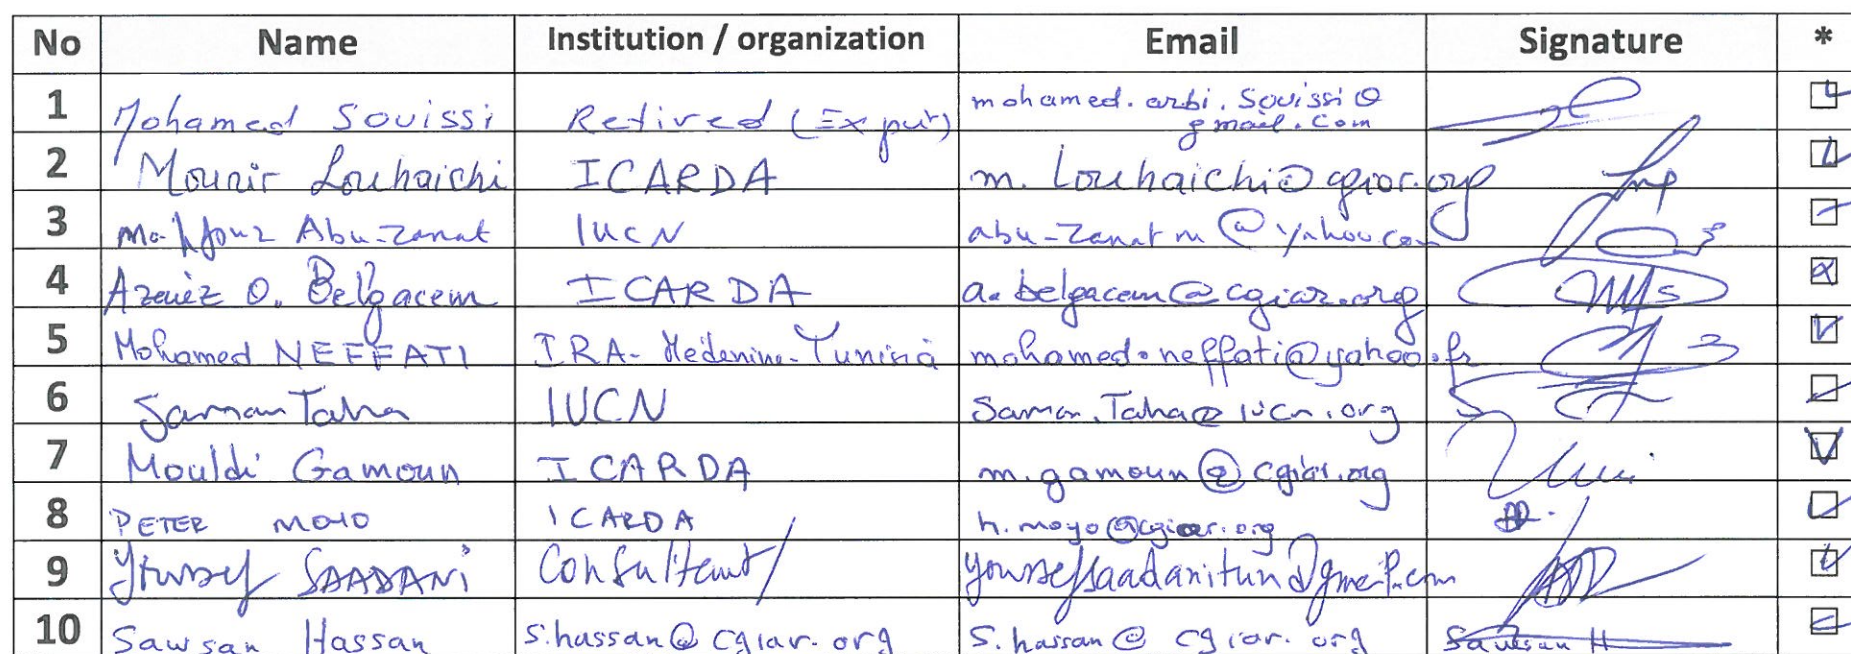 No Name Institution / organization Email Signature *
1 Mohamed Souissi Retired (Expert) mohamed.arbi.Souissi@
gmail.com
2 Mounir Louhaichi ICARDA m.Louhaichi@cgiar.org
3 Mahfouz Abu-Zanat IUCN abu-zanat m@yahoo.com
4 Azaiez O. Belgacem ICARDA a.belgacem@cgiar.org
5 Mohamed NEFFATI IRA-Medenine-Tunisia mohamed.neffati@yahoo.fr
6 Taha IUCN Taha@iucn.org
7 Mouldi Gamoun ICARDA m.gamoun@cgiar.org
8 PETER MOYO ICARDA h.moyo@cgiar.org
9 Youssef SAADANI Consultant youssefsaadanitun@gmail.com
10 Sawsan Hassan s.hassan@cgiar.org s.hassan@cgiar.org Sawsan H